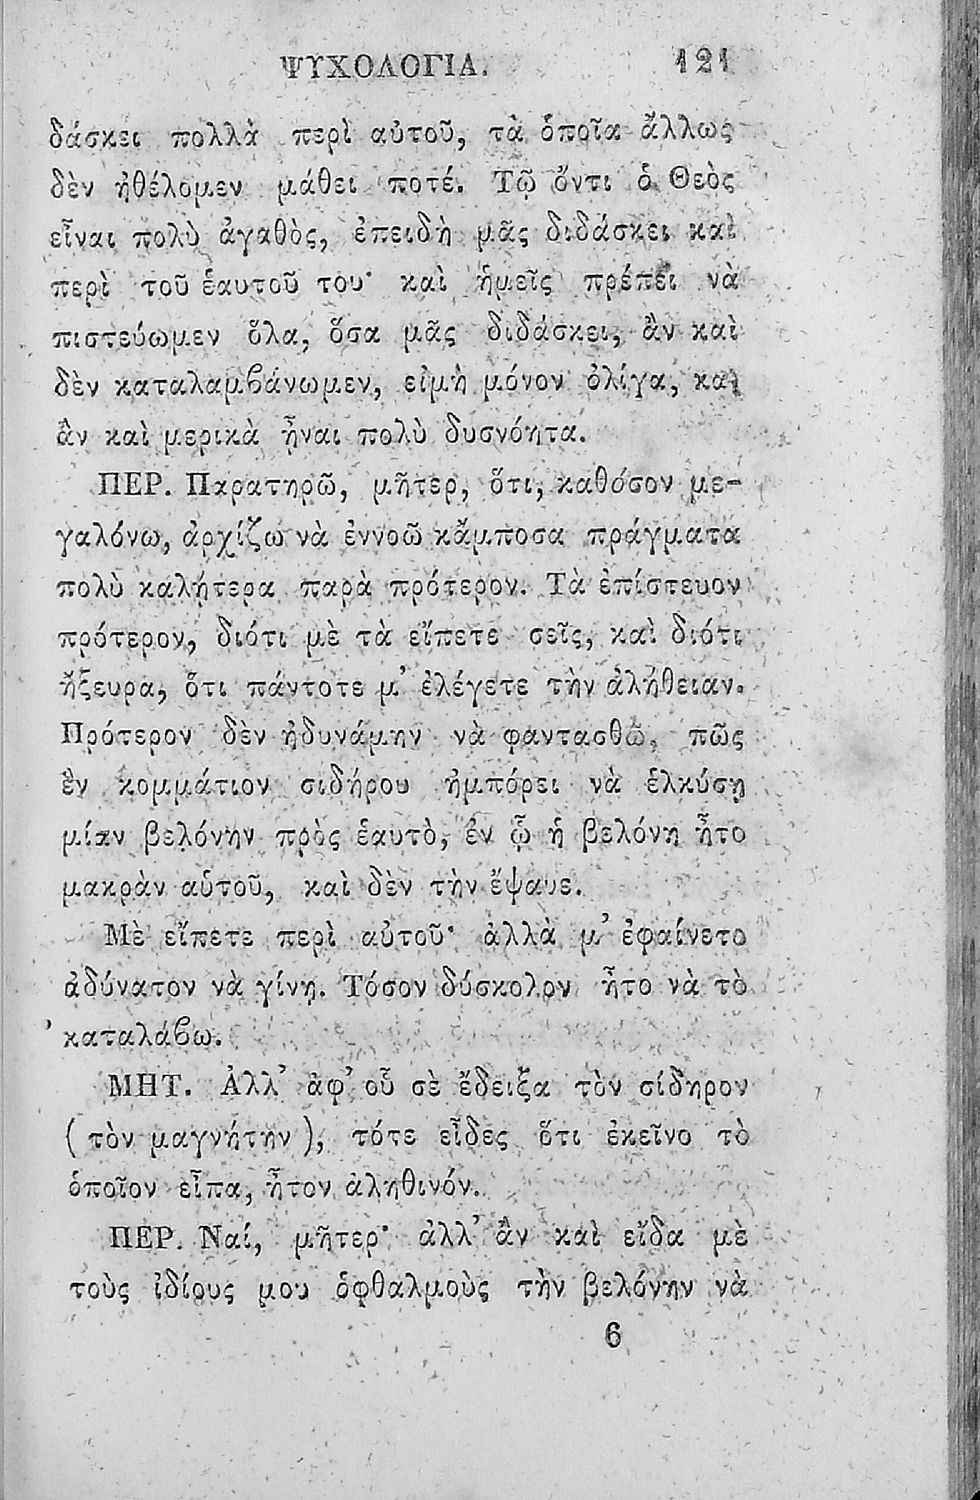 ΨΥΧΟΛΟΓΙΑ. 121
δάσκει πολλὰ περὶ αὐτοῦ, τὰ ὁποῖα ἄλλως
δὲν ἠθέλομεν μάθει ποτέ. Τῷ ὄντι ὁ Θεὸς
εἶναι πολὺ ἀγαθὸς, ἐπειδὴ μᾶς διδάσκει καὶ
περὶ τοῦ ἑαυτοῦ του· καὶ ἡμεῖς πρέπει νὰ
πιστεύωμεν ὅλα, ὅσα μᾶς διδάσκει, ἂν καὶ
δὲν καταλαμϐάνωμεν, εἰμὴ μόνον ὀλίγα, καὶ
ἂν καὶ μερικὰ ἦναι πολὺ δυσνόητα.
ΠΕΡ. Παρατηρῶ, μῆτερ, ὅτι, καθόσον με-
γαλόνω, ἀρχίζω νὰ ἐννοῶ κᾄμποσα πράγματα
πολὺ καλήτερα παρὰ πρότερον. Τὰ ἐπίστευον
πρότερον, διότι μὲ τὰ εἴπετε σεῖς, καὶ διότι
ἤξευρα, ὅτι πάντοτε μ’ ἐλέγετε τὴν ἀλήθειαν.
Πρότερον δὲν ἠδυνάμην νὰ φαντασθῶ, πῶς
ἓν κομμάτιον σιδήρου ἠμπόρει νὰ ἑλκύσῃ
μίαν βελόνην πρὸς ἑαυτὸ, ἐν ᾧ ἡ βελόνη ἦτο
μακρὰν αὑτοῦ, καὶ δὲν τὴν ἔψαυε.
Μὲ εἴπετε περὶ αὐτοῦ· ἀλλὰ μ’ ἐφαίνετο
ἀδύνατον νὰ γίνῃ. Τόσον δύσκολον ἦτο νὰ τὸ
καταλάϐω.
ΜΗΤ. Ἀλλ’ ἀφ’ οὗ σὲ ἔδειξα τὸν σίδηρον
(τὸν μαγνήτην), τότε εἶδες ὅτι ἐκεῖνο τὸ
ὁποῖον εἶπα, ἦτον ἀληθινόν.
ΠΕΡ. Ναί, μῆτερ· ἀλλ’ ἂν καὶ εἴδα μὲ
τοὺς ἰδίους μου ὀφθαλμοὺς τὴν βελόνην νὰ
6